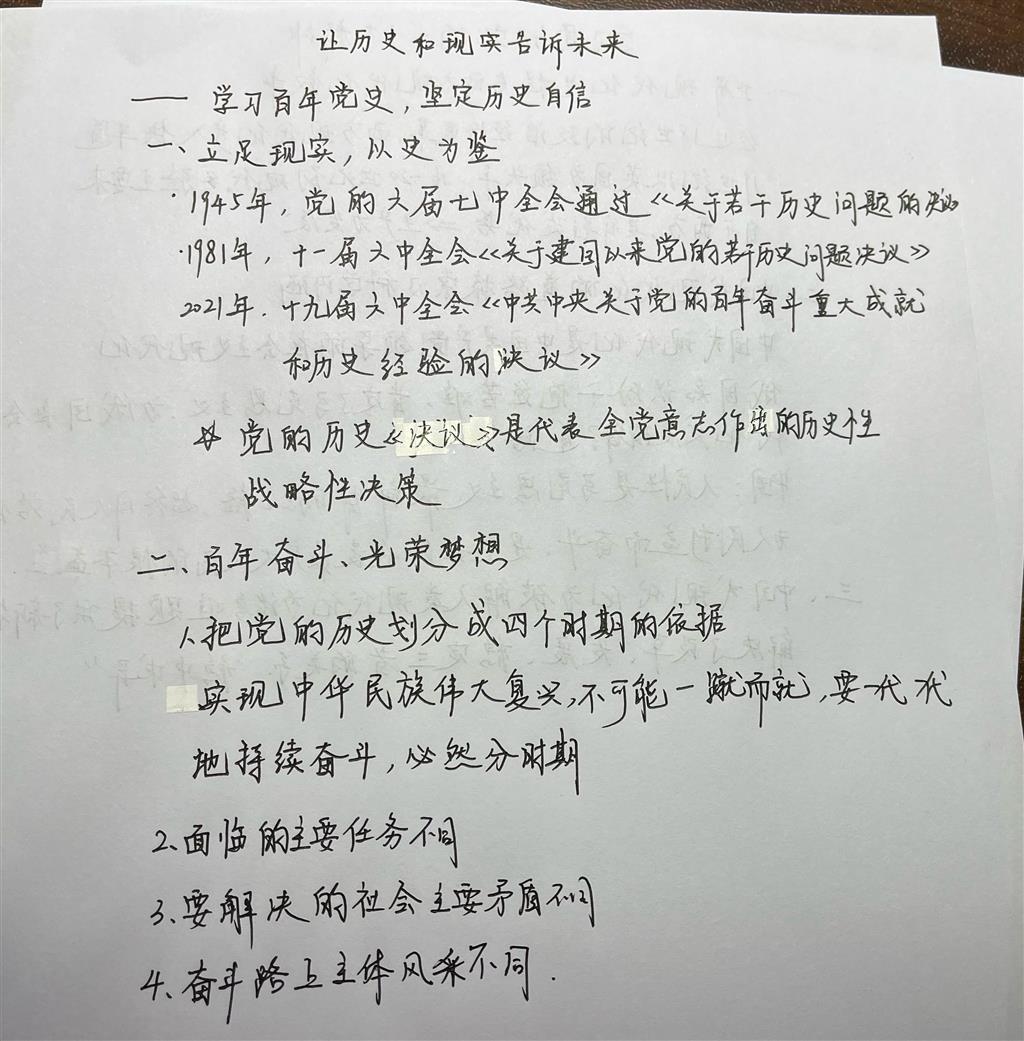 让历史和现实告诉未来
—— 学习百年党史，坚定历史自信
一、立足现实，以史为鉴
·1945年，党的六届七中全会通过《关于若干历史问题的决议
·1981年，十一届六中全会《关于建国以来党的若干历史问题决议》
2021年.十九届六中全会《中共中央关于党的百年奋斗重大成就
和历史经验的决议》
党的历史《决议》是代表全党意志作出的历史性
战略性决策
二、百年奋斗、光荣梦想
1、把党的历史划分成四个时期的依据
实现中华民族伟大复兴,不可能一蹴而就,要一代代
地持续奋斗,必然分时期
2、面临的主要任务不同
3、要解决的社会主要矛盾不同
4、奋斗路上主体风采不同.